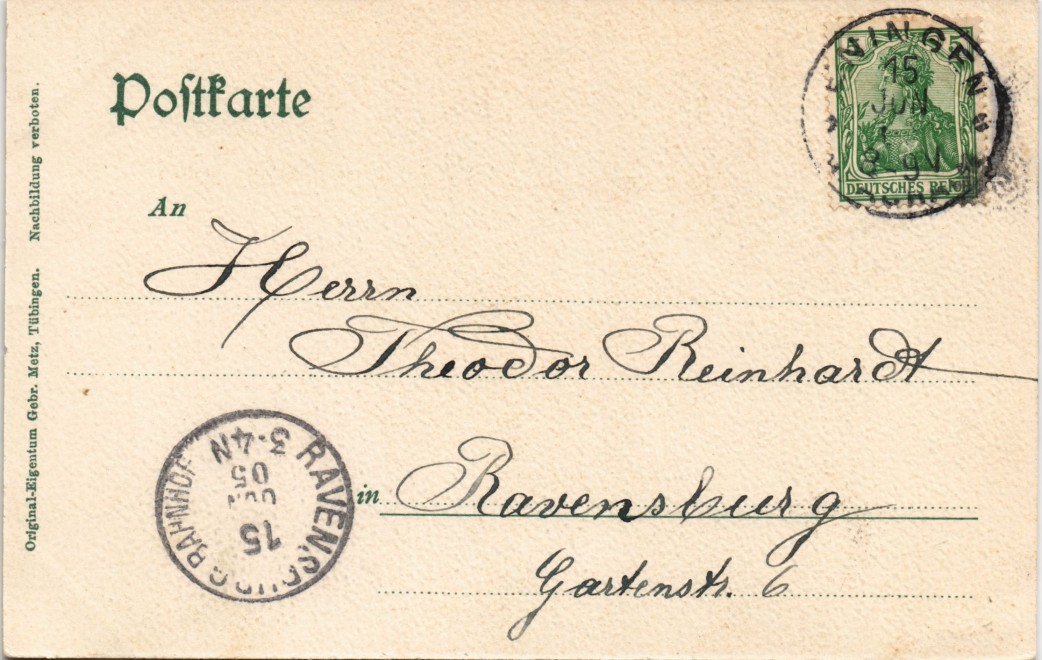 Postkarte
5
15
JUN
8-9V
DEUTSCHES REICH
An
Herrn
Theodor Reinhardt
in Ravensburg
Gartenstr. 6
RAVENSBURG BAHNHOF
15
JUN
05
3-4N
Original-Eigentum Gebr. Metz, Tübingen. Nachbildung verboten.